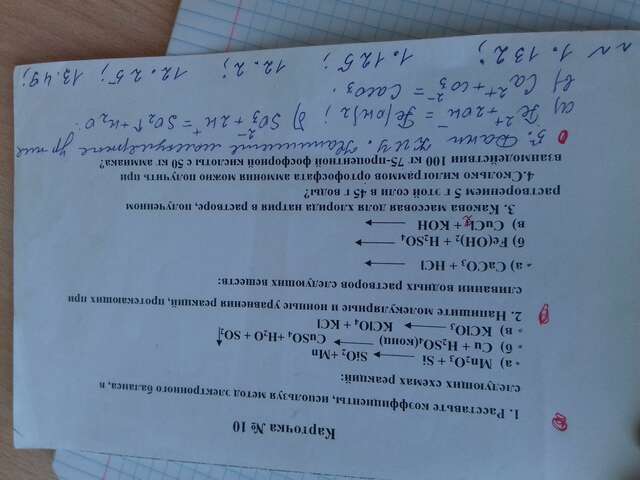 Карточка № 10
1. Расставьте коэффициенты, используя метод электронного баланса, в
следующих схемах реакций:
а) Mn₂O₃ + Si ⟶ SiO₂ + Mn
б) Cu + H₂SO₄(конц) ⟶ CuSO₄ + H₂O + SO₂
в) KClO₃ ⟶ KClO₄ + KCl
2. Напишите молекулярные и ионные уравнения реакций, протекающих при
сливании водных растворов следующих веществ:
а) CaCO₃ + HCl ⟶
б) Fe(OH)₂ + H₂SO₄ ⟶
в) CuCl₂ + KOH ⟶
3. Какова массовая доля хлорида натрия в растворе, полученном
растворением 5 г этой соли в 45 г воды?
4. Сколько килограммов ортофосфата аммония можно получить при
взаимодействии 100 кг 75-процентной фосфорной кислоты с 50 кг аммиака?
5. Даны К.И.У. Напишите молекулярные ур-ние
а) Fe²⁺ + 2OH⁻ = Fe(OH)₂; б) SO₃²⁻ + 2H⁺ = SO₂↑ + H₂O
в) Ca²⁺ + CO₃²⁻ = CaCO₃.
1.132; 1.125; 12.2; 12.25; 13.49;